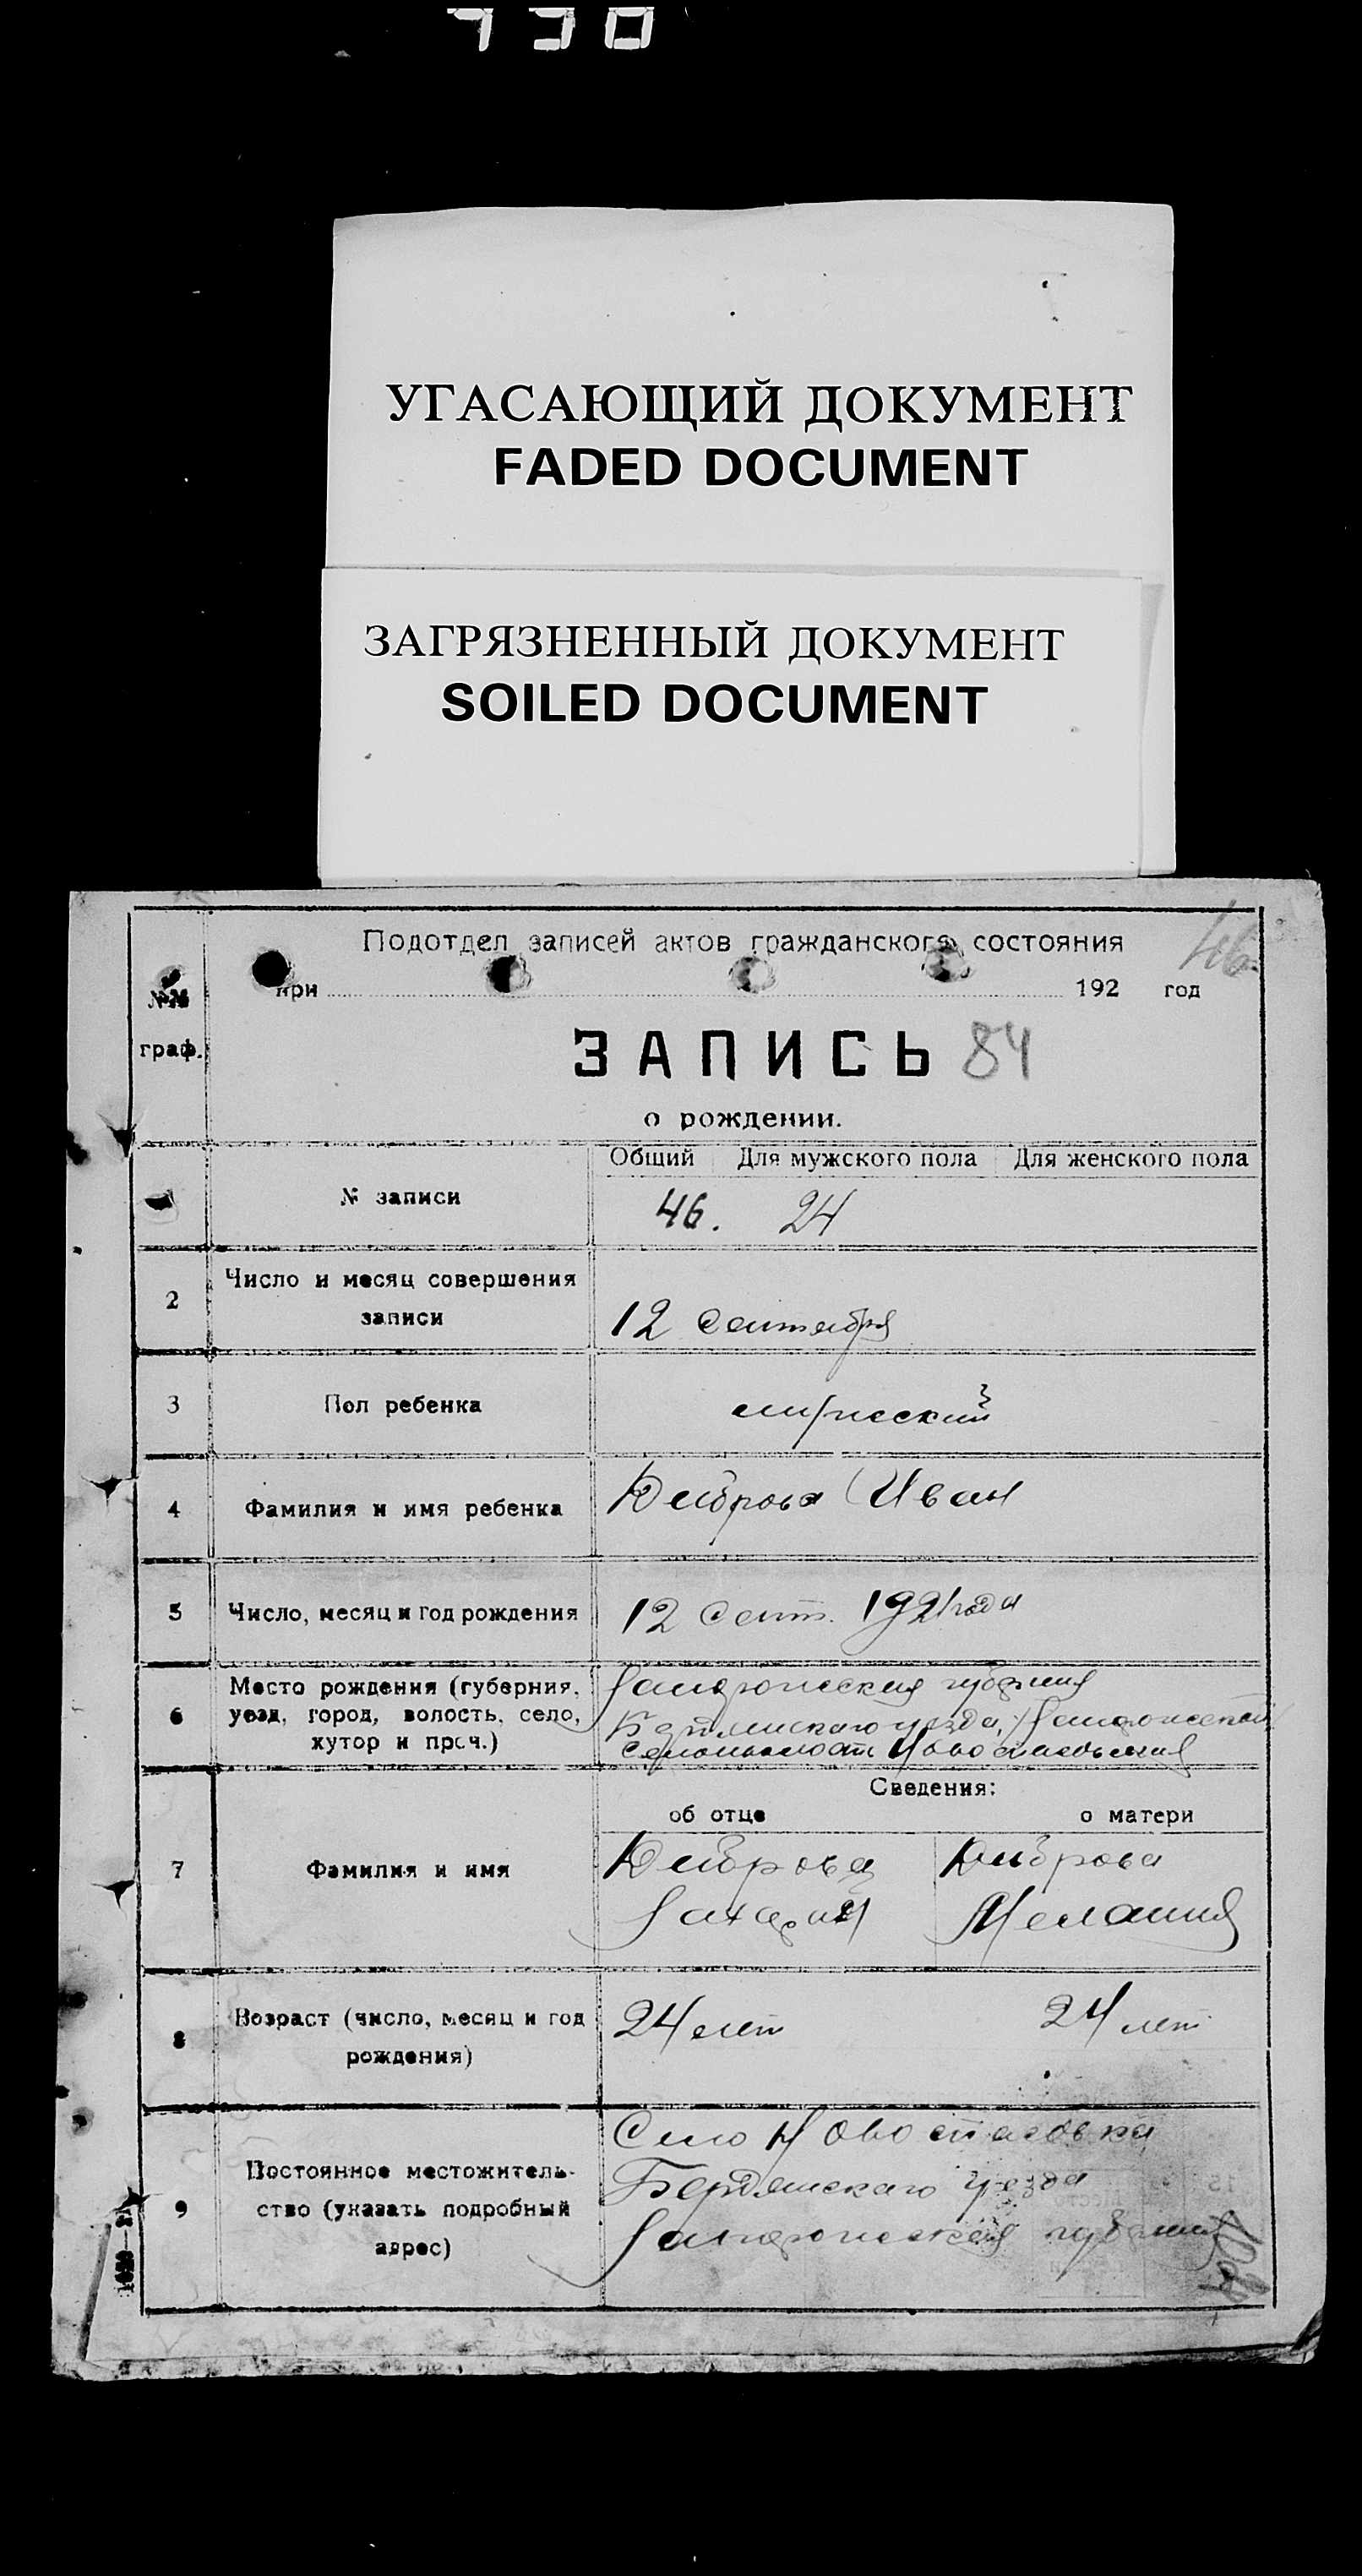 УГАСАЮЩИЙ ДОКУМЕНТ
FADED DOCUMENT
ЗАГРЯЗНЕННЫЙ ДОКУМЕНТ
SOILED DOCUMENT
Подотдел записей актов гражданского состояния
46.
при 192 год
№№ граф.
ЗАПИСЬ 84
о рождении.
Общий Для мужского пола Для женского пола
№ записи 46. 24
2 Число и месяц совершения
записи 12 Сентября
3 Пол ребенка мужеский
4 Фамилия и имя ребенка Диброва Иван
5 Число, месяц и год рождения 12 Сент. 1921 года
6 Место рождения (губерния, Запорожская губерния
уезд, город, волость, село, Бердянскаго уезда,
хутор и проч.)
Сведения:
об отце о матери
7 Фамилия и имя Диброва Диброва
Захарий Мелания
8 Возраст (число, месяц и год 24 лет 24 лет
рождения)
Село Новоспасовка
9 Постоянное местожитель- Бердянскаго уезда
ство (указать подробный Запорожская губерния
адрес)